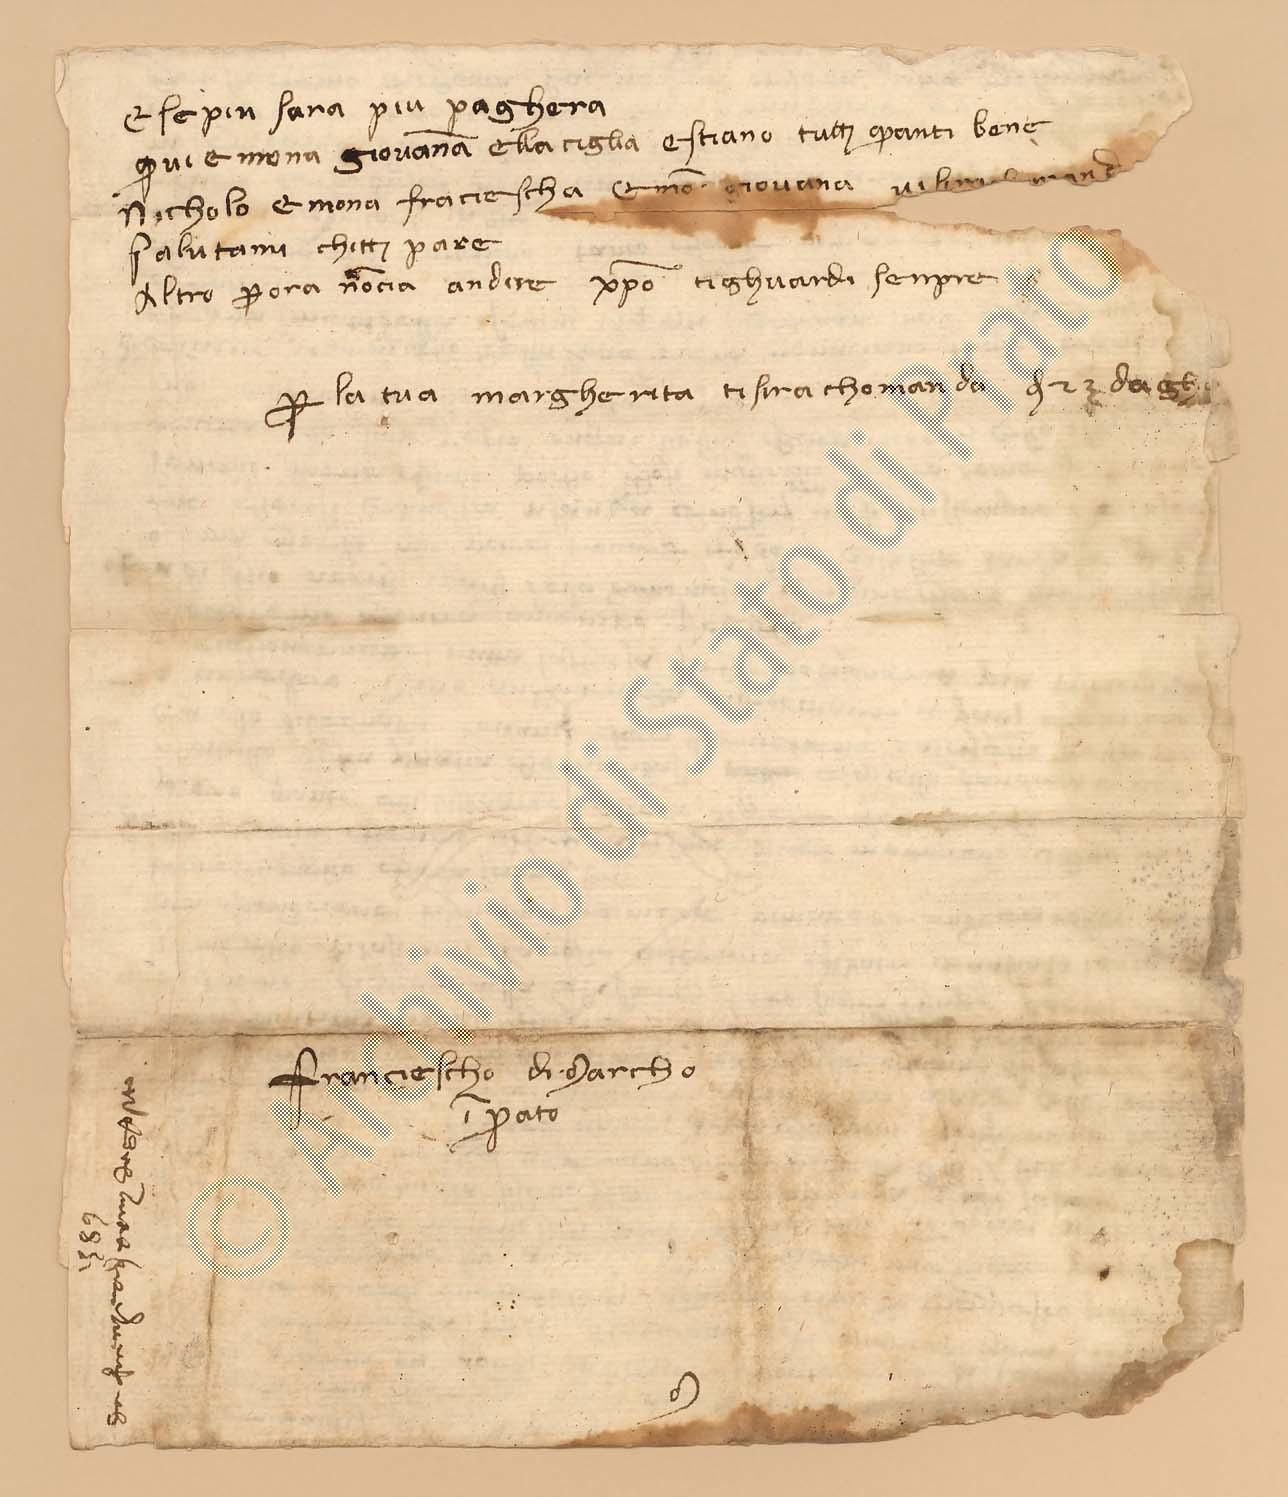 E se piu sara piu paghera
qui e mona giovana e lla ciglia e stiano tutti quanti bene
Nicholo e mona franciescha e mō giovana vi si mand
salutami chitti pare
Altro p ora nōcia andire xpō tighuardi senpre
p la tua margherita tisirachomanda dì 23 dagho
franciescho di Marcho
ī prato
da firenze
1389
© Archivio di Stato di Prato